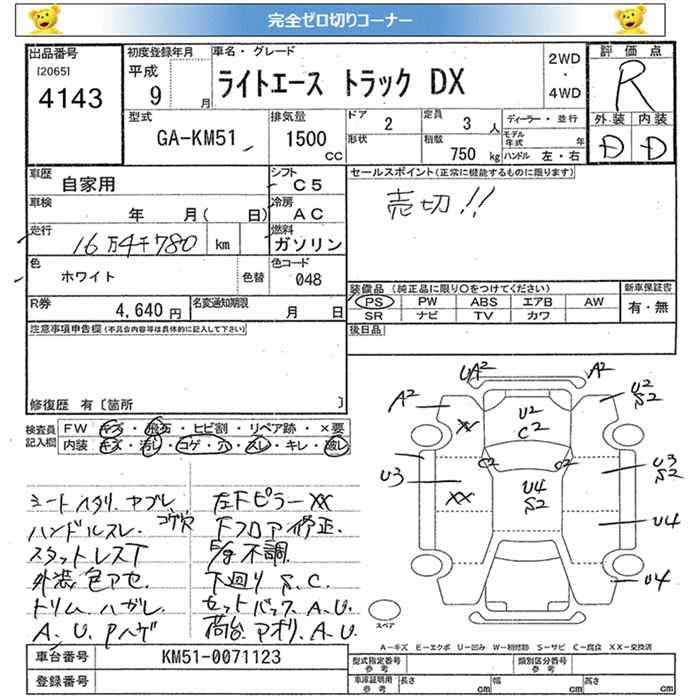 完全ゼロ切りコーナー
出品番号
[2065]
4143
初度登録年月
平成
9 月
車名・グレード
ライトエース トラック DX
2WD
・
4WD
評価点
R
外装 内装
D D
型式
GA-KM51
排気量
1500
CC
ドア
2
形状
定員
3 人
積載
750 kg
ディーラー・並行
モデル
年式 年
ハンドル 左・右
車歴
自家用
シフト
C5
車検
年 月( 日)
冷房
AC
走行
16万4千780 km
燃料
ガソリン
色
ホワイト
色替
色コード
048
R券
4,640 円
名変通知期限
月 日
セールスポイント(正常に機能するものに限ります)
売切!!
装備品(純正品に限り〇をつけてください)
PS PW ABS エアB AW
SR ナビ TV カワ
新車保証書
有・無
後日品
注意事項申告欄(不具合内容等は具体的に記入して下さい)
修復歴 有〔箇所 〕
検査員
記入欄
FW キズ・飛石・ヒビ割・リペア跡・×要
内装 キズ・汚し・コゲ・穴・スレ・キレ・破レ
シートハタリ. ヤブレ
コゲ穴
ハンドルスレ.
スタットレスT
外装 色アセ.
トリム ハガレ
A. U. Pハゲ
左Fピラー XX
Fフロア修正.
F/g不調.
下回り S. C.
セットバック A. U.
荷台. アオリ. A. U.
UA2
A2
A2
U2
S2
XX
U2
C2
C2
C2
U3
XX
U4
S2
U3
S2
U4
U4
スペア
A-キズ E-エクボ U-凹み W-補修跡 S-サビ C-腐食 XX-交換済
車台番号
KM51-0071123
登録番号
型式指定番号
参考
類別区分番号
参考
車庫証明用
参考
長さ cm
幅 cm
高さ cm